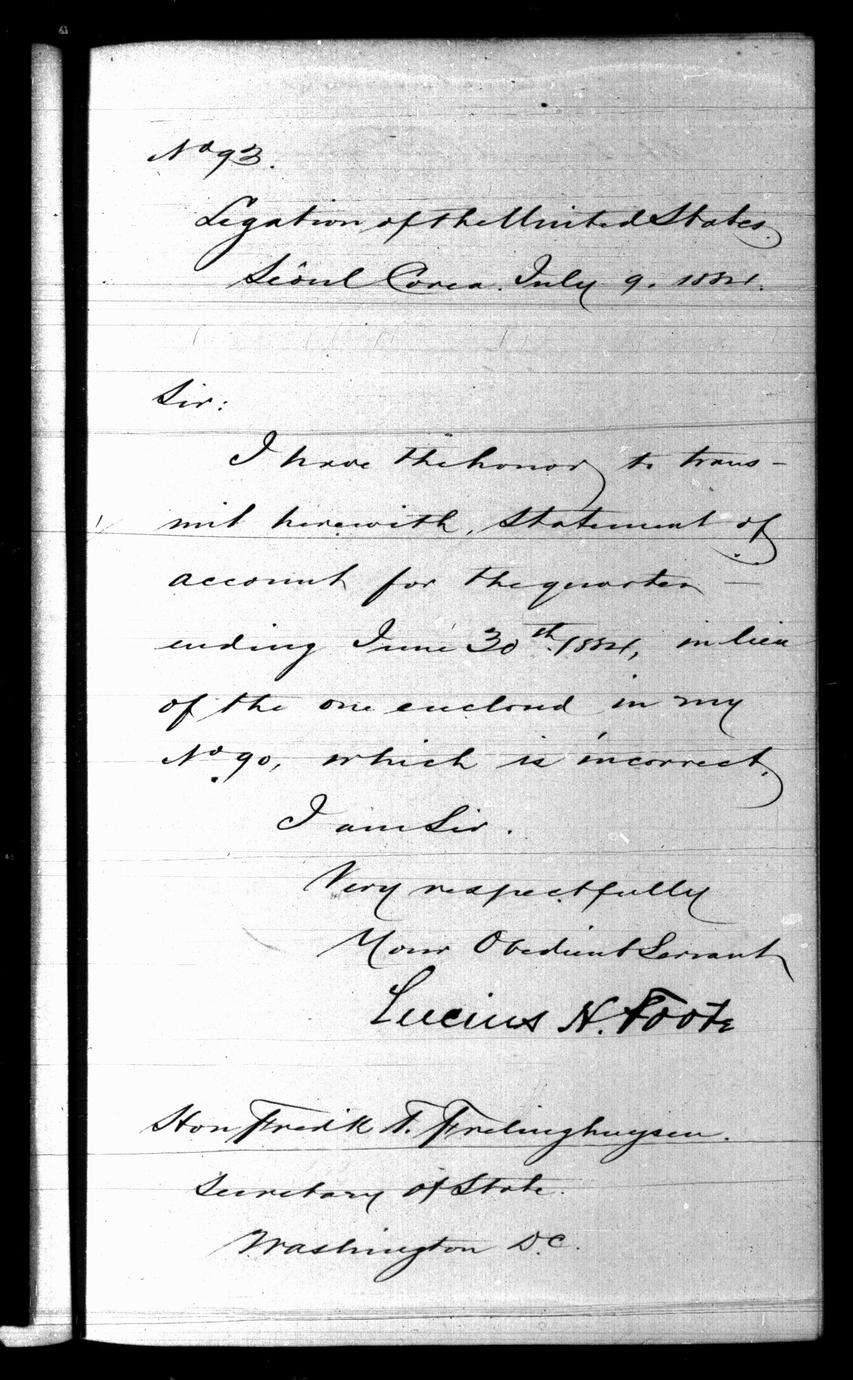 No 93.
Legation of the United States
Séoul Corea. July 9. 1884.
Sir:
I have the honor to trans-
mit herewith, statement of
account for the quarter
ending June 30th 1884, in lieu
of the one enclosed in my
No 90, which is incorrect,
I am Sir.
Very respectfully
Your Obedient Servant
Lucius H. Foote
Hon Fredk T. Frelinghuysen.
Secretary of State.
Washington D.C.